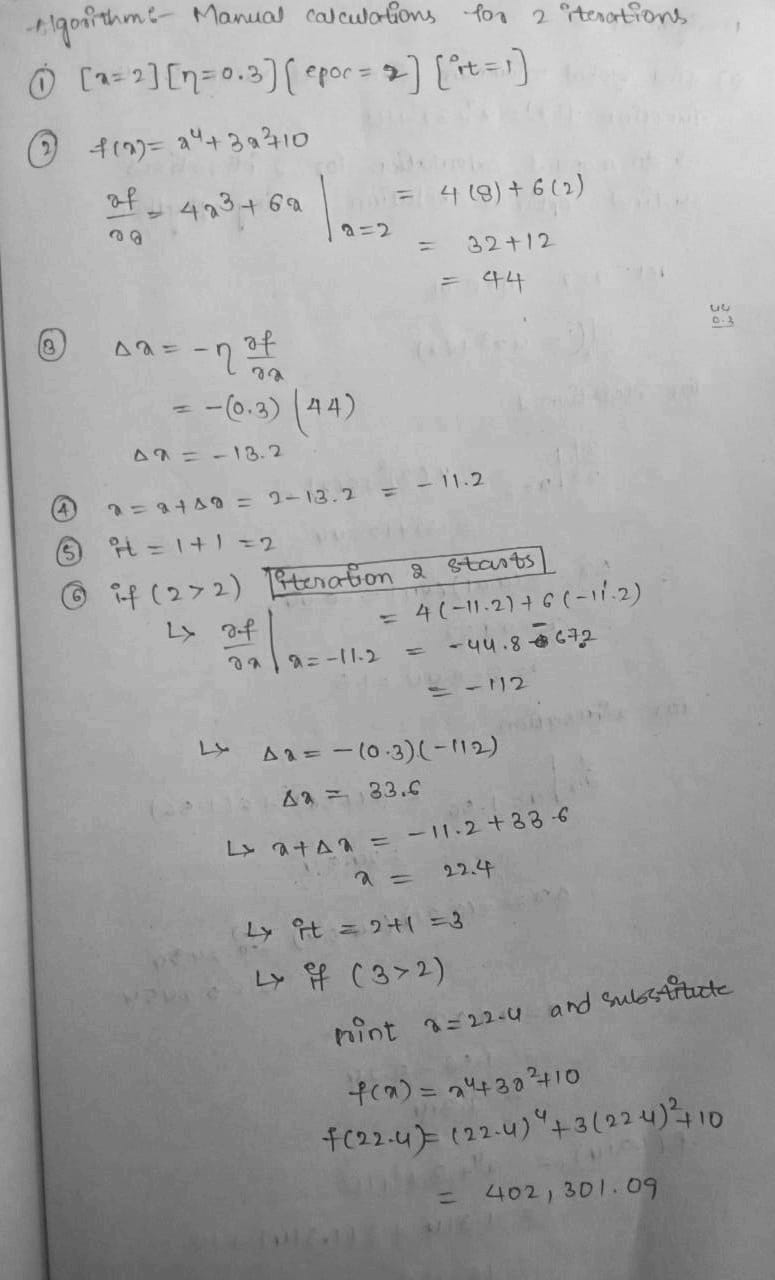 Algorithm:- Manual calculations for 2 iterations
① [x=2] [η=0.3] [epoc = 2] [it=1]
② f(x)= x⁴+3x²+10
∂f/∂x = 4x³+6x |x=2 = 4(8)+6(2)
= 32+12
= 44
44
0.3
③ Δx = -η ∂f/∂x
= -(0.3) (44)
Δx = -13.2
④ x = x+Δx = 2-13.2 = -11.2
⑤ it = 1+1 =2
⑥ if (2>2) Iteration 2 starts
↳ ∂f/∂x |x=-11.2 = 4(-11.2)+6(-11.2)
= -44.8 - 672
= -112
↳ Δx = -(0.3)(-112)
Δx = 33.6
↳ x+Δx = -11.2+33.6
x = 22.4
↳ it = 2+1 =3
↳ if (3>2)
print x=22.4 and substitute
f(x) = x⁴+3x²+10
f(22.4)= (22.4)⁴+3(22.4)²+10
= 402,301.09